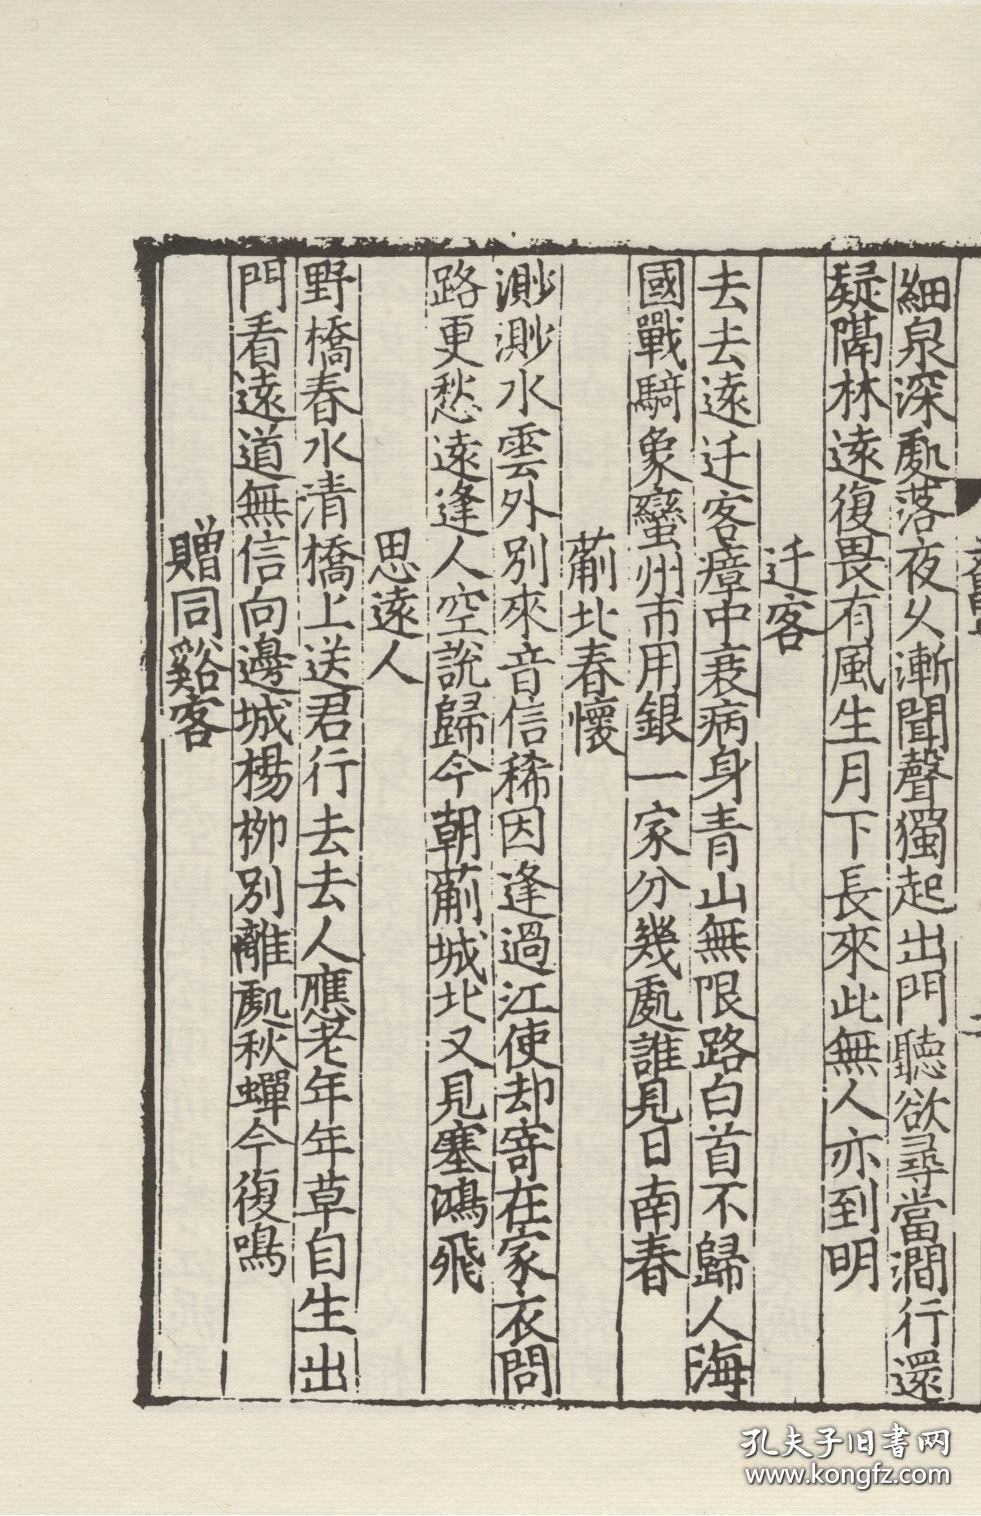 細泉深處落夜久漸聞聲獨起出門聽欲尋當澗行還
疑隔林遠復畏有風生月下長來此無人亦到明
迁客
去去遠迁客瘴中衰病身青山無限路白首不歸人海
國戰騎象蠻州市用銀一家分幾處誰見日南春
蓟北春懷
渺渺水雲外別來音信稀因逢過江使却寄在家衣問
路更愁遠逢人空說歸今朝蓟城北又見塞鴻飛
思遠人
野橋春水清橋上送君行去去人應老年年草自生出
門看遠道無信向邊城楊栁別離處秋蟬今復鳴
贈同谿客
孔夫子旧书网
www.kongfz.com